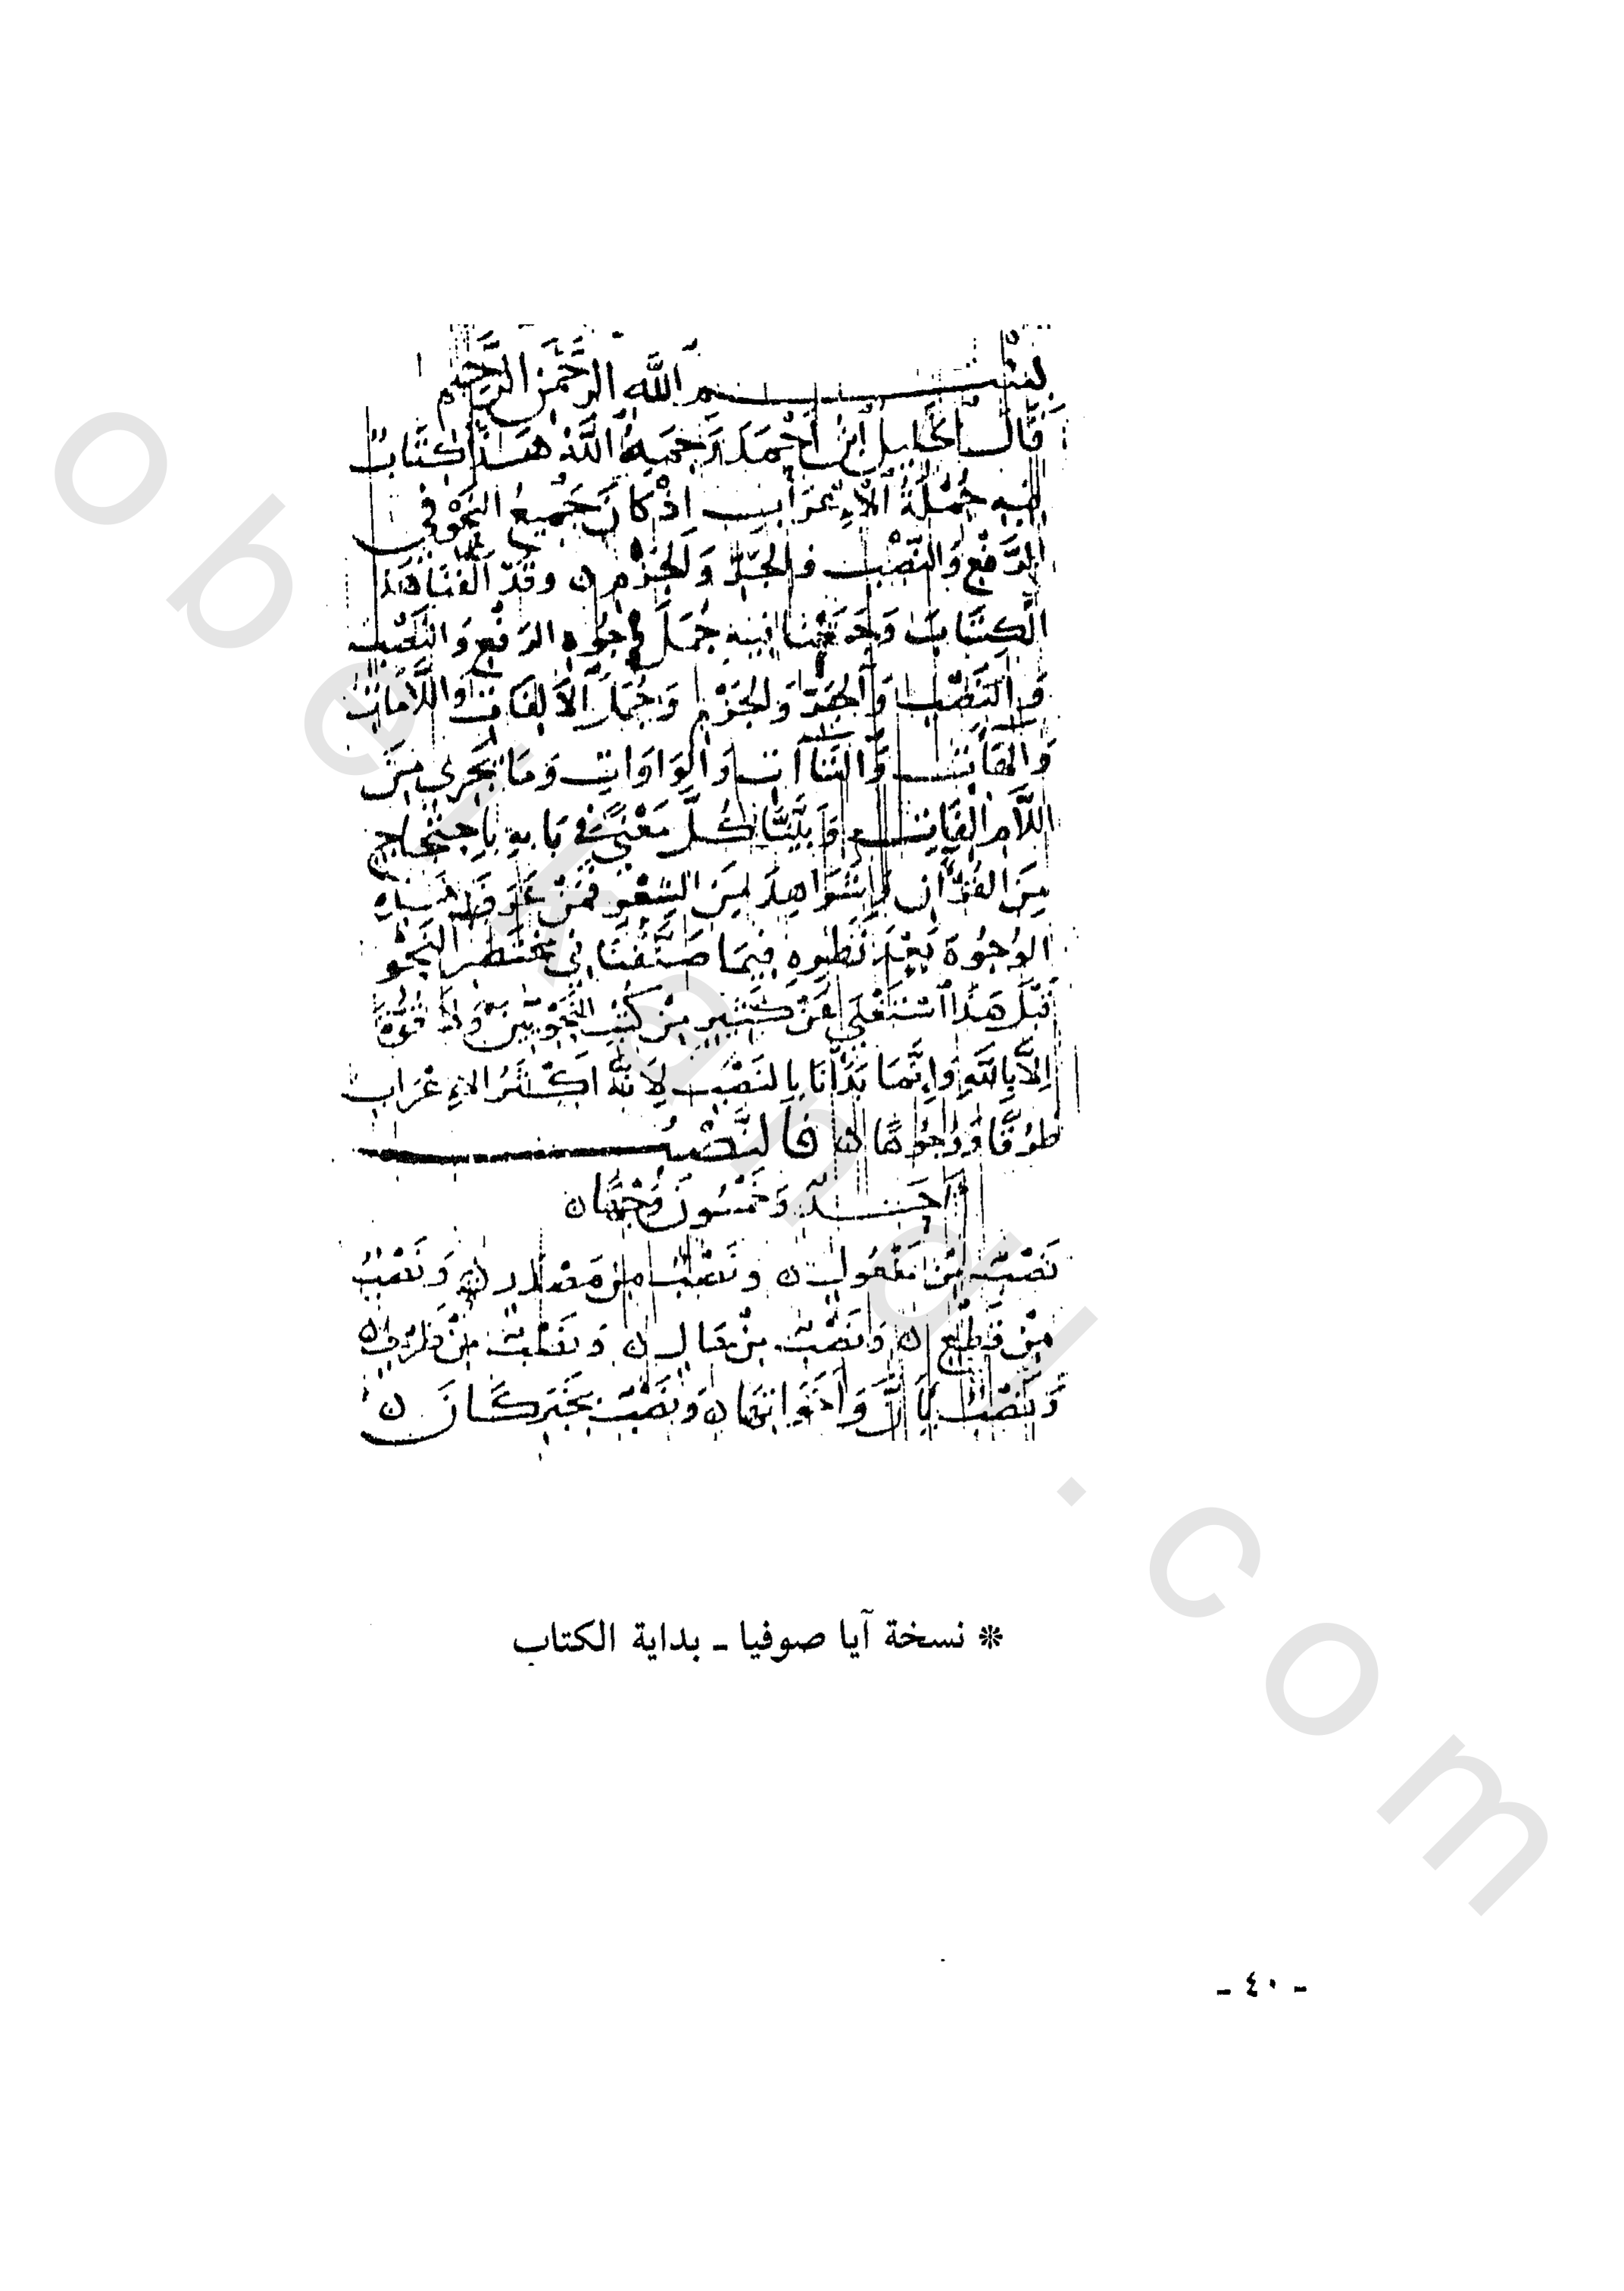 بِسْم الله الرَّحْمَن الرَّحِيم
قَالَ الخَلِيل ابن أَحْمَد رَحِمَهُ اللَّهُ هَذَا كِتَابٌ
فيه جُمْلَةُ الْإِعْرَاب إِذْ كَانَ جَمِيعُ النَّحْوِ في
الرَّفْعِ وَالنَّصْبِ والجَرِّ وَالجَزْمِ ن وقد أَلَّفْنَا هَذَا
الْكِتَابَ وَجَمَعْنَا فيه جُمَلَ وجُوه الرَفْعِ وَالنَّصْب
وَالنَّصْبِ وَالْجَرِّ وَالجَزْمِ وَجُمَلَ الْأَلِفَاتِ وَاللَّامَاتِ
وَالْهَاآتِ وَالتَّاآتِ وَالْوَاوَاتِ وَمَا يَجْرِى مِنَ
اللَّام وَبَيَّنَّا كُلَّ مَعْنًى فِي بَابِهِ بِاحْتِجَاجٍ
مِنَ القُرْآنِ وَشَوَاهِدَ مِنَ الشِّعْرِ فَمَنْ عَرَفَ هَذِهِ
الوُجُوهَ بَعْدَ نَظَرِهِ فِيمَا صَنَّفْنَا فِي مُخْتَصَر النَّحْوِ
قَبْلَ هَذَا اسْتَغْنَى عَنْ كَثِيرٍ مِنْ كُتُبِ النَّحْوِيّينَ وَلَا قُوَّةَ
إِلَّا بِاللَّهِ وَإِنَّمَا بَدَأْنَا بِالنَّصْبِ لِأَنَّهُ أَكْثَرُ الْإِعْرَابِ
طُرُقًا وَوُجُوهًا ن فَالنَّصْبُ
أَحَدٌ وَخَمْسُونَ وَجْهًا ن
نَصْبٌ مِنْ مَفْعُولٍ ن وَنَصْبٌ مِنْ مَصْدَرٍ ن وَنَصْبٌ
مِنْ قَطْعٍ ن وَنَصْبٌ مِنْ حَالٍ ن وَنَصْبٌ مِنْ ظَرْفٍ ن
وَنَصْبٌ بِإِنَّ وَأَخَوَاتِهَا ن وَنَصْبٌ بِخَبَرِ كَانَ ن
❊ نسخة آيا صوفيا ـ بداية الكتاب
ـ ٤٠ ـ
obeikandl.com